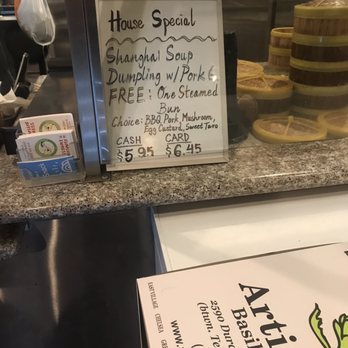 House Special
Shanghai Soup
Dumpling w/ Pork 6
FREE: One Steamed
Bun
Choice: BBQ Pork, Mushroom,
Egg Custard, Sweet Taro
CASH CARD
$5.95 $6.45
Arti
Basil
2590 Dur
(btwn. Te
www.
EASTVILLAGE CHELSEA